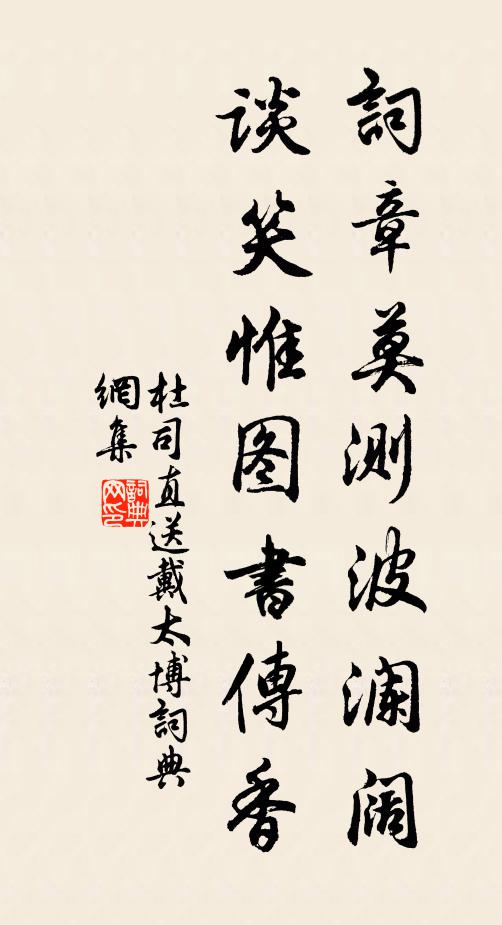 詞章莫测波澜阔
谈笑惟图書傳香
杜司直送戴太博詞典
網集
詞典网印